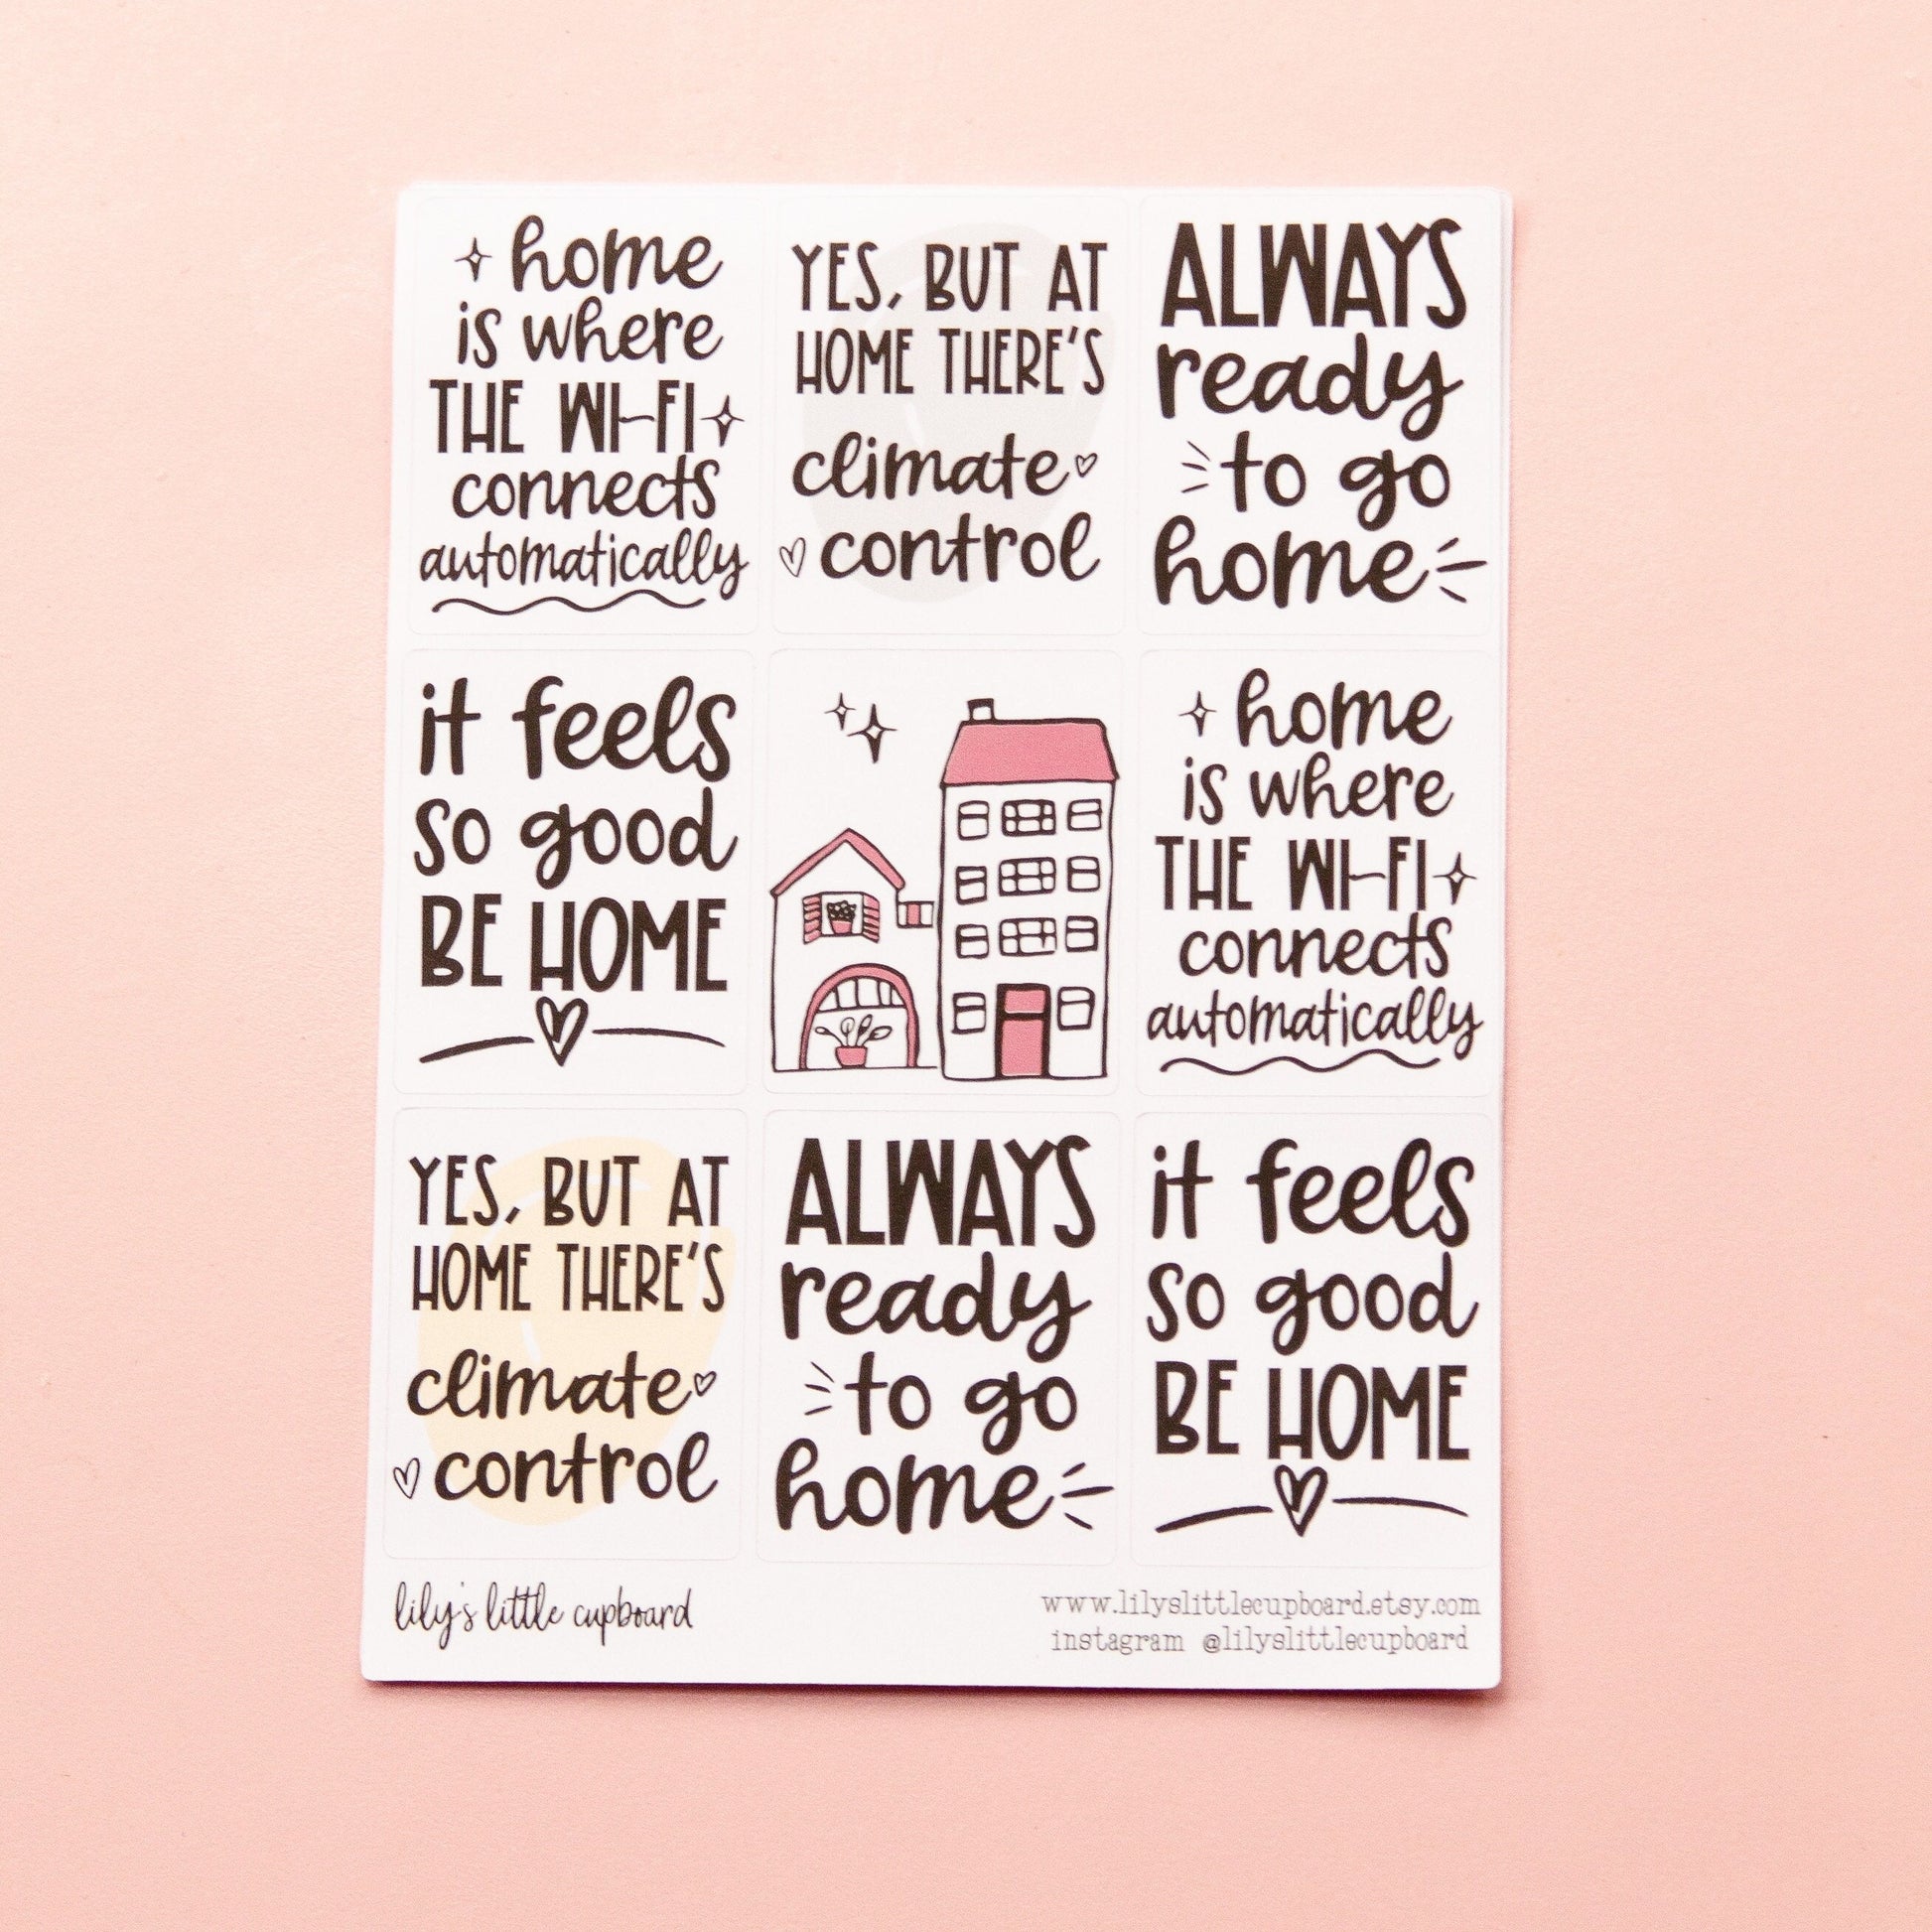 home
is where
THE WI-FI
connects
automatically
YES, BUT AT
HOME THERE'S
climate
control
ALWAYS
ready
to go
home
it feels
so good
BE HOME
home
is where
THE WI-FI
connects
automatically
YES, BUT AT
HOME THERE'S
climate
control
ALWAYS
ready
to go
home
it feels
so good
BE HOME
lily's little cupboard
www.lilyslittlecupboard.etsy.com
instagram @lilyslittlecupboard